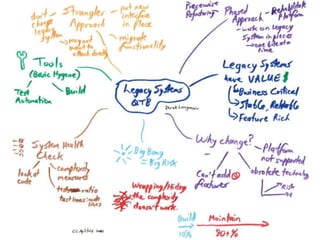 don't
change
legacy
system
Strangler
Approach
put new
interface
in place
migrate
functionality
Piecewise
Refactoring
Phased
Approach
Rehabilitate
Platform
work on Legacy
System in pieces
one bite at a
time
Tools
(Basic Hygiene)
Test
Automation
Build
Legacy Systems
QTB
Legacy Systems
have VALUE $
Business Critical
Stable, Reliable
Feature Rich
System Health
Check
look at
code
complexity
measures
test ratio
Big Bang
= Big Risk
Wrapping/Hiding
the complexity
doesn't work.
Why change?
Can't add
features
Platform
not supported
obsolete technology
Risk
Build
10%
Maintain
90+%